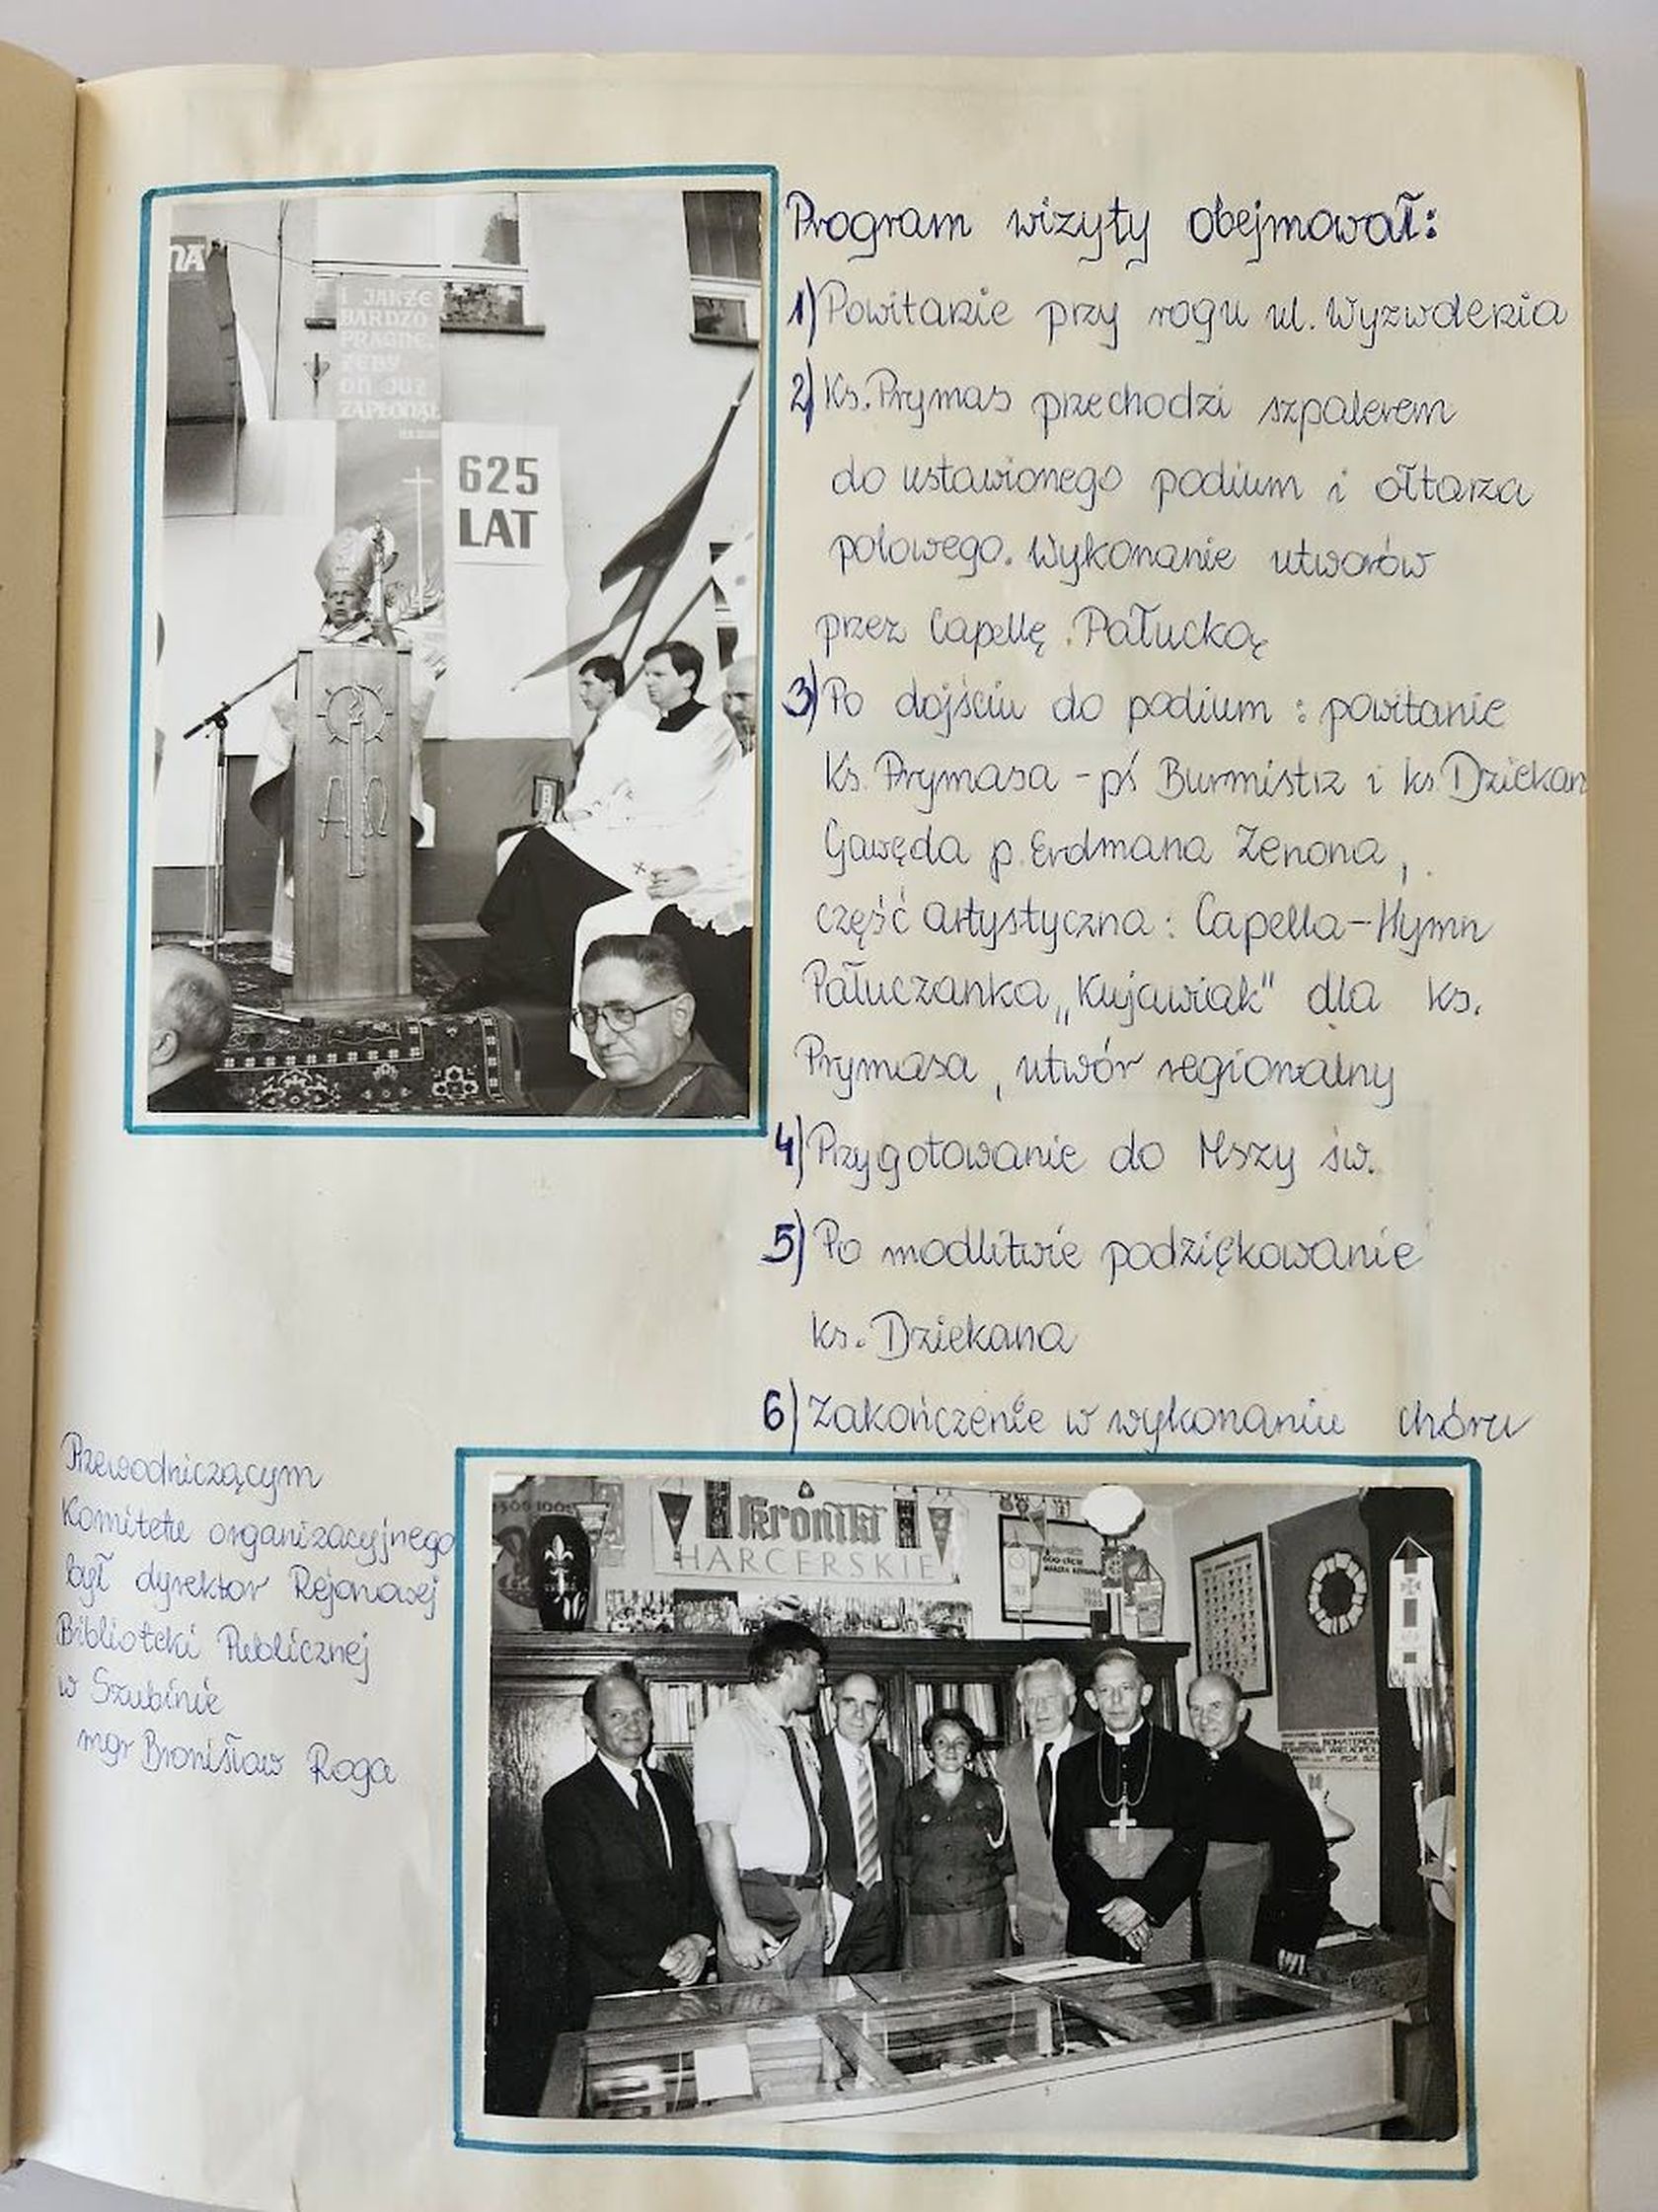 Program wizyty obejmował:
1) Powitanie przy rogu ul. Wyzwolenia
2) Ks. Prymas przechodzi szpalerem
do ustawionego podium i ołtarza
polowego. Wykonanie utworów
przez Capellę Pałucką
3) Po dojściu do podium : powitanie
Ks. Prymasa - Burmistrz i ks. Dziekan
Gawęda p. Erdmana Zenona,
część artystyczna : Capella - Hymn
Pałuczanka „Kujawiak" dla Ks.
Prymasa, utwór regionalny
4) Przygotowanie do Mszy św.
5) Po modlitwie podziękowanie
ks. Dziekana
6) Zakończenie w wykonaniu chóru
NA
I JAKŻE
BARDZO
PRAGNĘ,
ŻEBY
ON JUŻ
ZAPŁONĄŁ
625
LAT
A Ω
Przewodniczącym
Komitetu organizacyjnego
był dyrektor Rejonowej
Biblioteki Publicznej
w Szubinie
mgr Bronisław Roga
Kroniki
HARCERSKIE